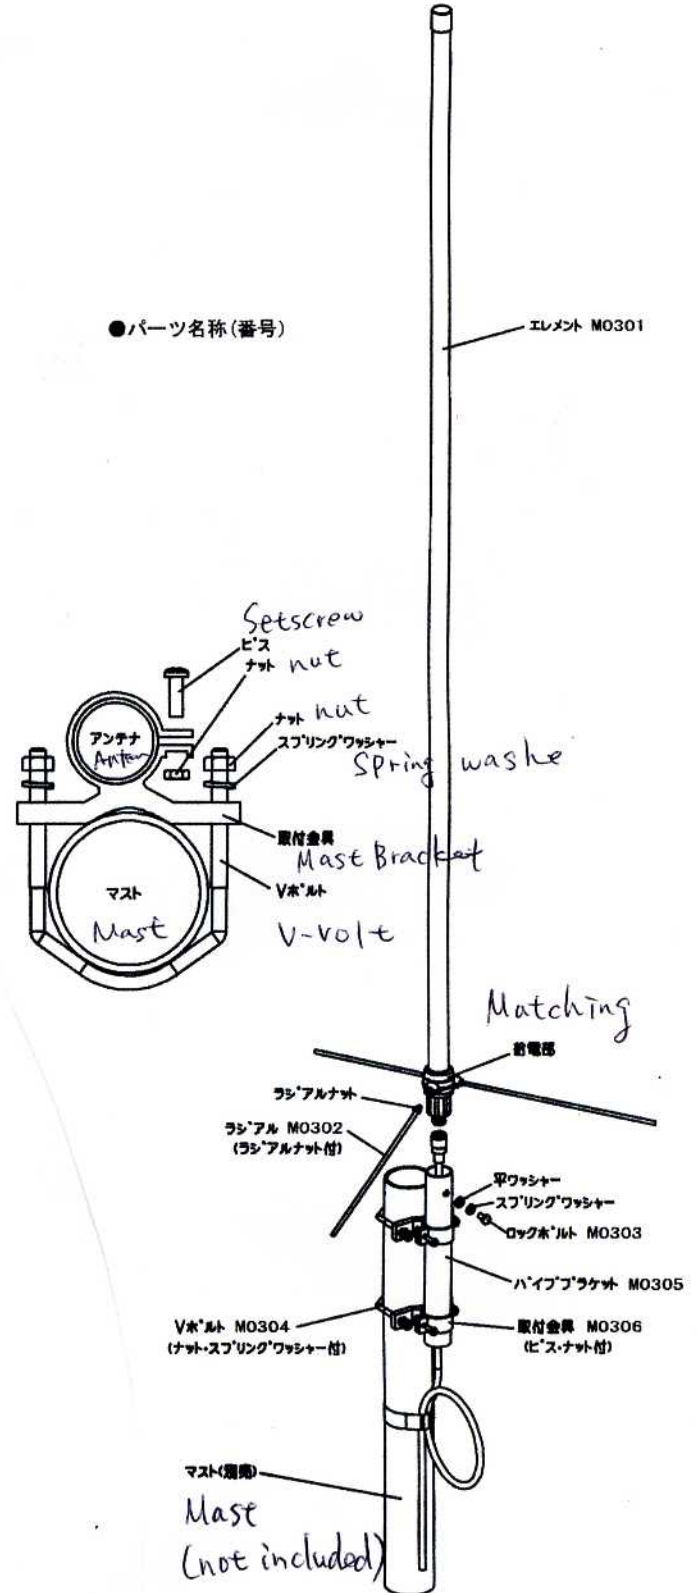 ●パーツ名称(番号)
エレメント M0301
Setscrew
ビス
ナット nut
ナット nut
スプリングワッシャー
Spring washe
アンテナ
Anten
取付金具
Mast Bracket
Vボルト
V-Volt
マスト
Mast
Matching
給電部
ラジアルナット
ラジアル M0302
(ラジアルナット付)
平ワッシャー
スプリングワッシャー
ロックボルト M0303
パイプブラケット M0305
Vボルト M0304
(ナット・スプリングワッシャー付)
取付金具 M0306
(ビス・ナット付)
マスト(別売)
Mast
(not included)